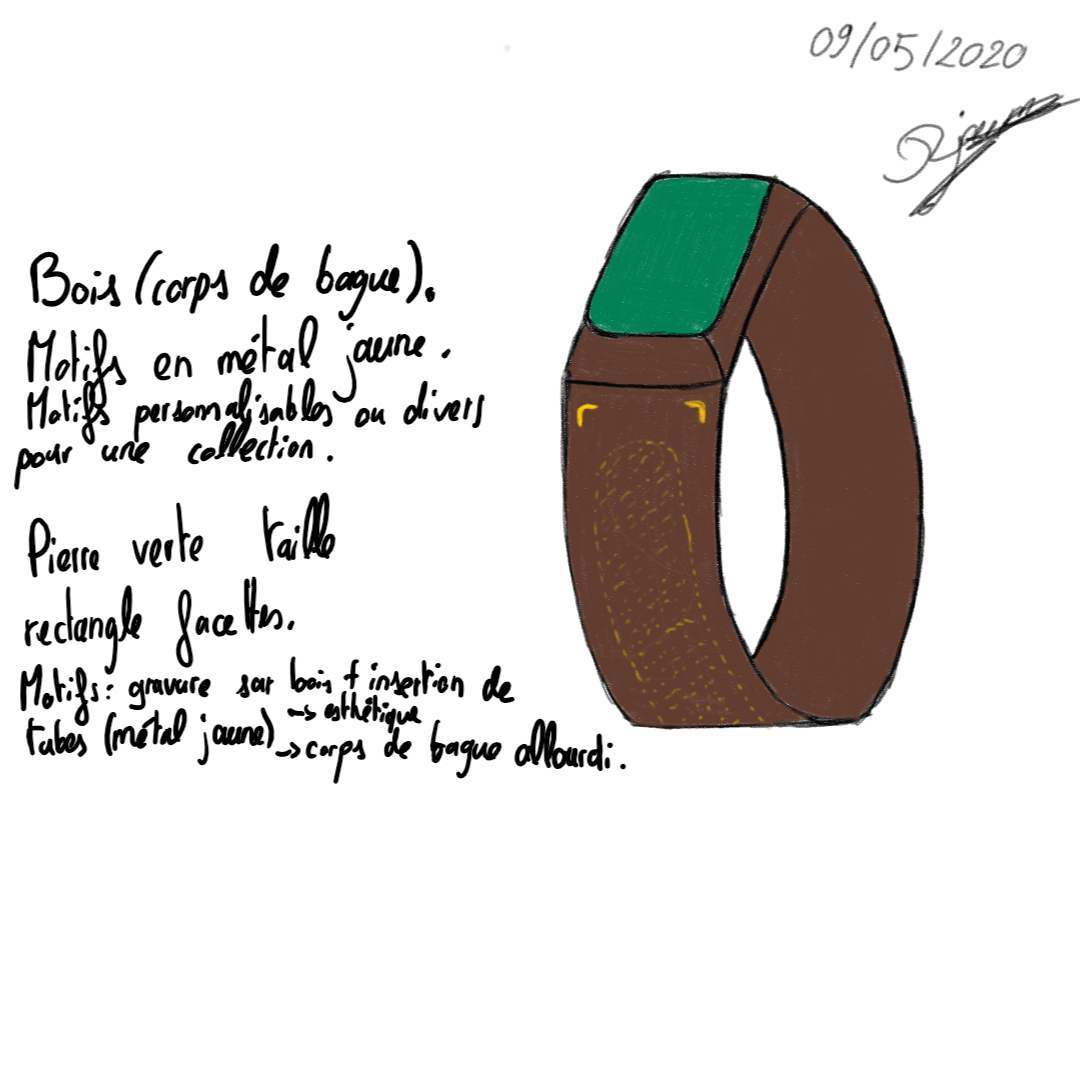 09/05/2020
Bois (corps de bague).
Motifs en métal jaune.
Motifs personnalisables ou divers
pour une collection.
Pierre verte taille
rectangle facettes.
Motifs: gravure sur bois + insertion de
tubes (métal jaune) -> esthétique
-> corps de bague allourdi.